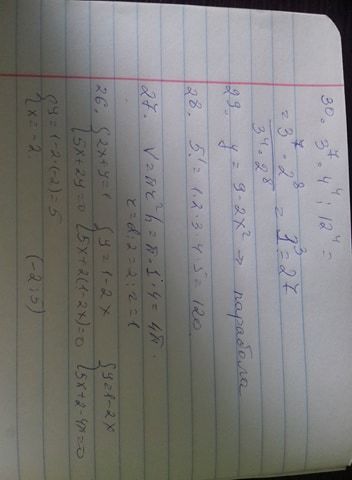 30. 3⁷·4⁴ : 12⁴ =
= 3⁷·2⁸ / 3⁴·2⁸ = 3³ = 27
29. y = 9 - 2x² ⇒ парабола
28. 5! = 1·2·3·4·5 = 120.
27. V = πr²h = π·1·4 = 4π.
r = d:2 = 2:2 = 1
26. { 2x+y=1 { y=1-2x { y=1-2x
{ 5x+2y=0 { 5x+2(1-2x)=0 { 5x+2-4x=0
{ y=1-2·(-2)=5
{ x=-2. (-2;5)